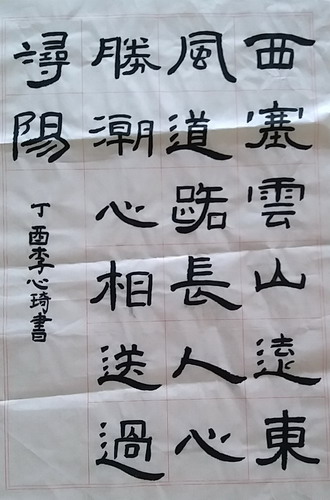 西塞雲山遠東
風道路長人心
勝潮心相送過
潯陽
丁酉李心琦書